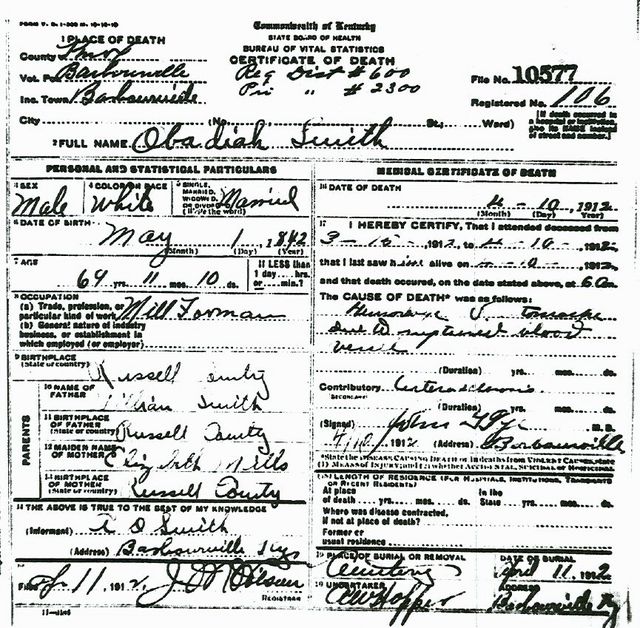 FORM V. S. 1-300 M. 10-10-10
Commonwealth of Kentucky
STATE BOARD OF HEALTH
BUREAU OF VITAL STATISTICS
CERTIFICATE OF DEATH
Reg Dist # 600
Pri " # 2300
1 PLACE OF DEATH
County Knox
Vot. Pct. Barbourville
Inc. Town Barbourville
City (No. St., Ward)
File No. 10577
Registered No. 106
[If death occurred in a hospital or institution, give its NAME instead of street and number.]
2 FULL NAME Obadiah Smith
PERSONAL AND STATISTICAL PARTICULARS
3 SEX Male
4 COLOR OR RACE White
5 SINGLE, MARRIED, WIDOWED, OR DIVORCED (Write the word) Married
6 DATE OF BIRTH May 1, 1842
(Month) (Day) (Year)
7 AGE 69 yrs. 11 mos. 10 ds.
If LESS than 1 day.... hrs. or .... min.?
8 OCCUPATION
(a) Trade, profession, or particular kind of work Mill Forman
(b) General nature of industry business, or establishment in which employed (or employer)
9 BIRTHPLACE
(State or country) Russell County
PARENTS
10 NAME OF FATHER Smith
11 BIRTHPLACE OF FATHER (State or country) Russell County
12 MAIDEN NAME OF MOTHER Elizabeth Mills
13 BIRTHPLACE OF MOTHER (State or country) Russell County
14 THE ABOVE IS TRUE TO THE BEST OF MY KNOWLEDGE
(Informant) Smith
(Address) Barbourville Ky
15
Filed 11, 1912,
REGISTRAR
11-
MEDICAL CERTIFICATE OF DEATH
16 DATE OF DEATH
4 - 10 -, 1912
(Month) (Day) (Year)
17 I HEREBY CERTIFY, That I attended deceased from
3 - - 1912, to 4 - 10 - 1912,
that I last saw him alive on 4 - 10 - 1912,
and that death occured, on the date stated above, at 6
The CAUSE OF DEATH* was as follows:
Hemorrage
due to ruptured blood
vessel
(Duration) yrs. mos. ds.
Contributory
Secondary
(Duration) yrs. mos. ds.
(Signed) M. D.
1912 (Address) Barbourville
*State the DISEASE CAUSING DEATH, or in deaths from VIOLENT CAUSES state (1) MEANS OF INJURY; and (2) whether ACCIDENTAL, SUICIDAL or HOMICIDAL
18 LENGTH OF RESIDENCE (FOR HOSPITALS, INSTITUTIONS, TRANSIENTS OR RECENT RESIDENTS)
At place of death yrs. mos. ds. In the State yrs. mos. ds.
Where was disease contracted, if not at place of death?
Former or usual residence
19 PLACE OF BURIAL OR REMOVAL Cemetery
DATE OF BURIAL April 11, 1912
20 UNDERTAKER Hopper
ADDRESS Barbourville Ky